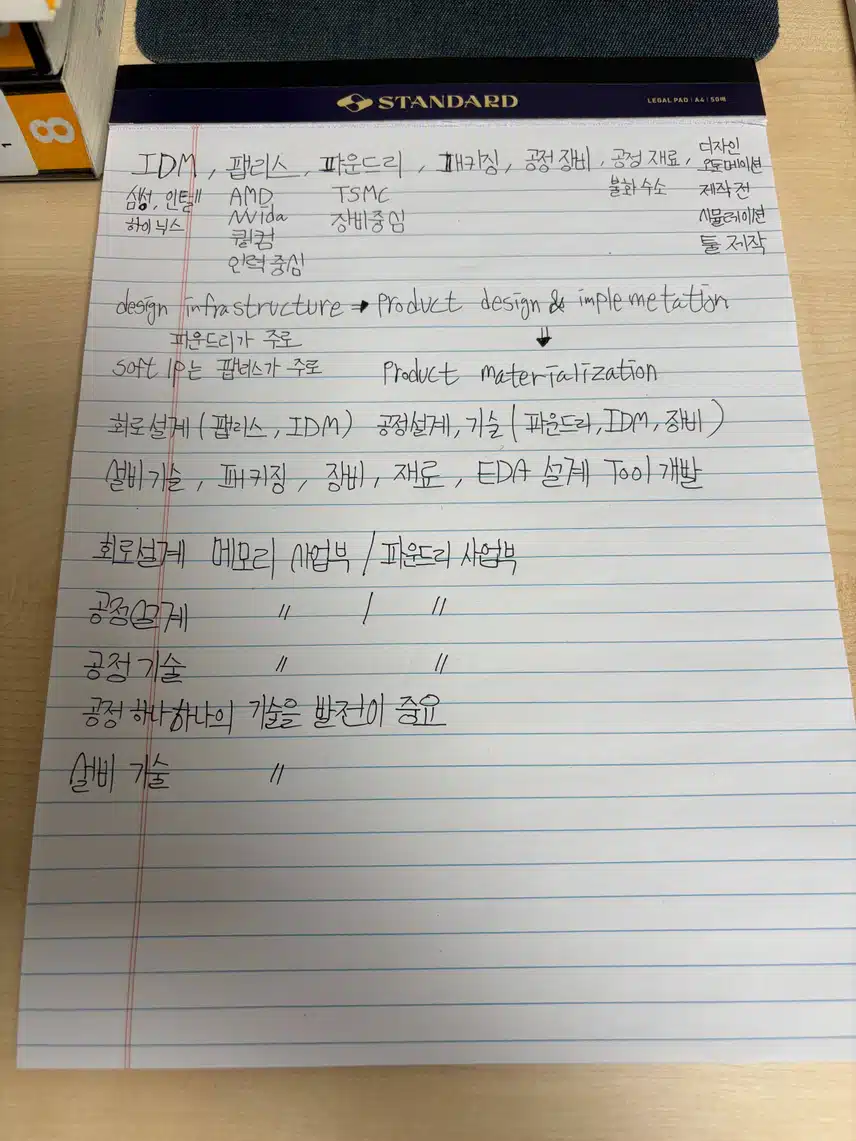 STANDARD
LEGAL PAD | A4 | 50매
8
1
IDM, 팹리스, 파운드리, 패키징, 공정 장비, 공정 재료, 디자인 오토메이션
삼성, 인텔 AMD TSMC 불화수소 제작 전
하이닉스 NVida 장비중심 시뮬레이션
퀄컴 툴 제작
인력 중심
design infrastructure → product design & implemetation
파운드리가 주로 ↓
soft IP는 팹리스가 주로 product materialization
회로설계 (팹리스, IDM) 공정설계, 기술 (파운드리, IDM, 장비)
설비기술, 패키징, 장비, 재료, EDA 설계 Tool 개발
회로설계 메모리 사업부 / 파운드리 사업부
공정설계 〃 / 〃
공정 기술 〃 〃
공정 하나하나의 기술을 발전이 중요
설비 기술 〃